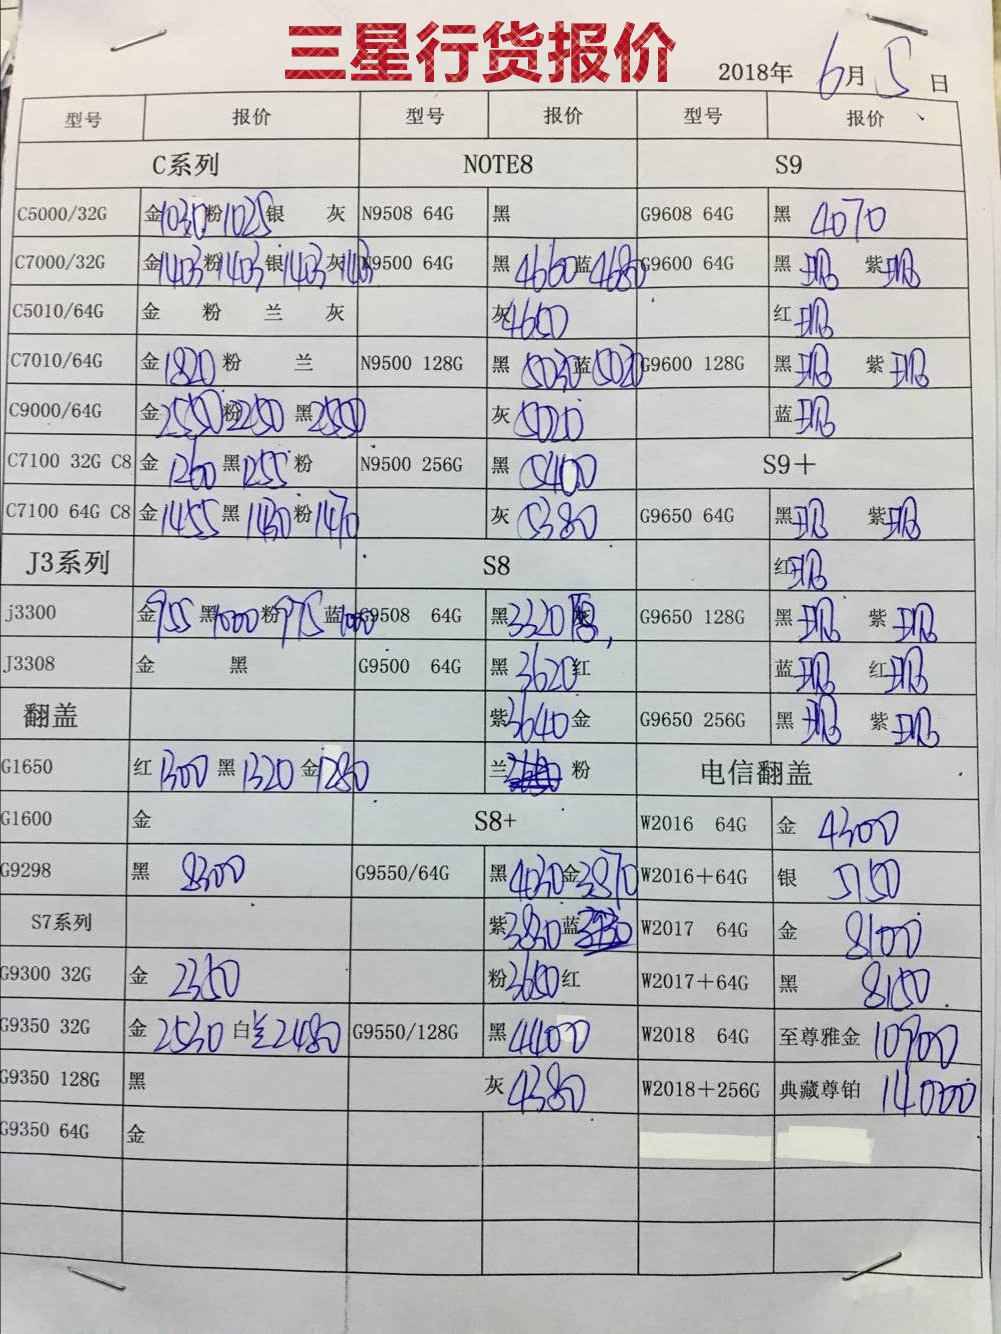 三星行货报价
2018年 6月 5日
型号 报价 型号 报价 型号 报价
C系列 NOTE8 S9
C5000/32G 金1030 粉1025 银 灰 N9508 64G 黑 G9608 64G 黑 4070
C7000/32G 金1403 粉1403 银1403 灰1403 N9500 64G 黑 4660 蓝4680 G9600 64G 黑 现 紫现
C5010/64G 金 粉 兰 灰 灰4660 红现
C7010/64G 金1820 粉 兰 N9500 128G 黑 5030 蓝5020 G9600 128G 黑现 紫现
C9000/64G 金2550 粉2250 黑2550 灰5020 蓝现
C7100 32G C8 金 1260 黑1255 粉 N9500 256G 黑 5400 S9+
C7100 64G C8 金1455 黑1430 粉1470 灰 5380 G9650 64G 黑现 紫现
J3系列 S8 红现
j3300 金955 黑1000 粉975 蓝1000 G9508 64G 黑3320 G9650 128G 黑现 紫现
J3308 金 黑 G9500 64G 黑3620 红 蓝现 红现
翻盖 紫3640 金 G9650 256G 黑 现 紫现
G1650 红1300 黑1320 金1280 兰 粉 电信翻盖
G1600 金 S8+ W2016 64G 金 4300
G9298 黑 8300 G9550/64G 黑4030 金3870 W2016+64G 银 5150
S7系列 紫3830 蓝 W2017 64G 金 8100
G9300 32G 金 2350 粉3650 红 W2017+64G 黑 8150.
G9350 32G 金 2530 白兰2480 G9550/128G 黑4400 W2018 64G 至尊雅金 10900
G9350 128G 黑 灰 4380 W2018+256G 典藏尊铂 14000
G9350 64G 金